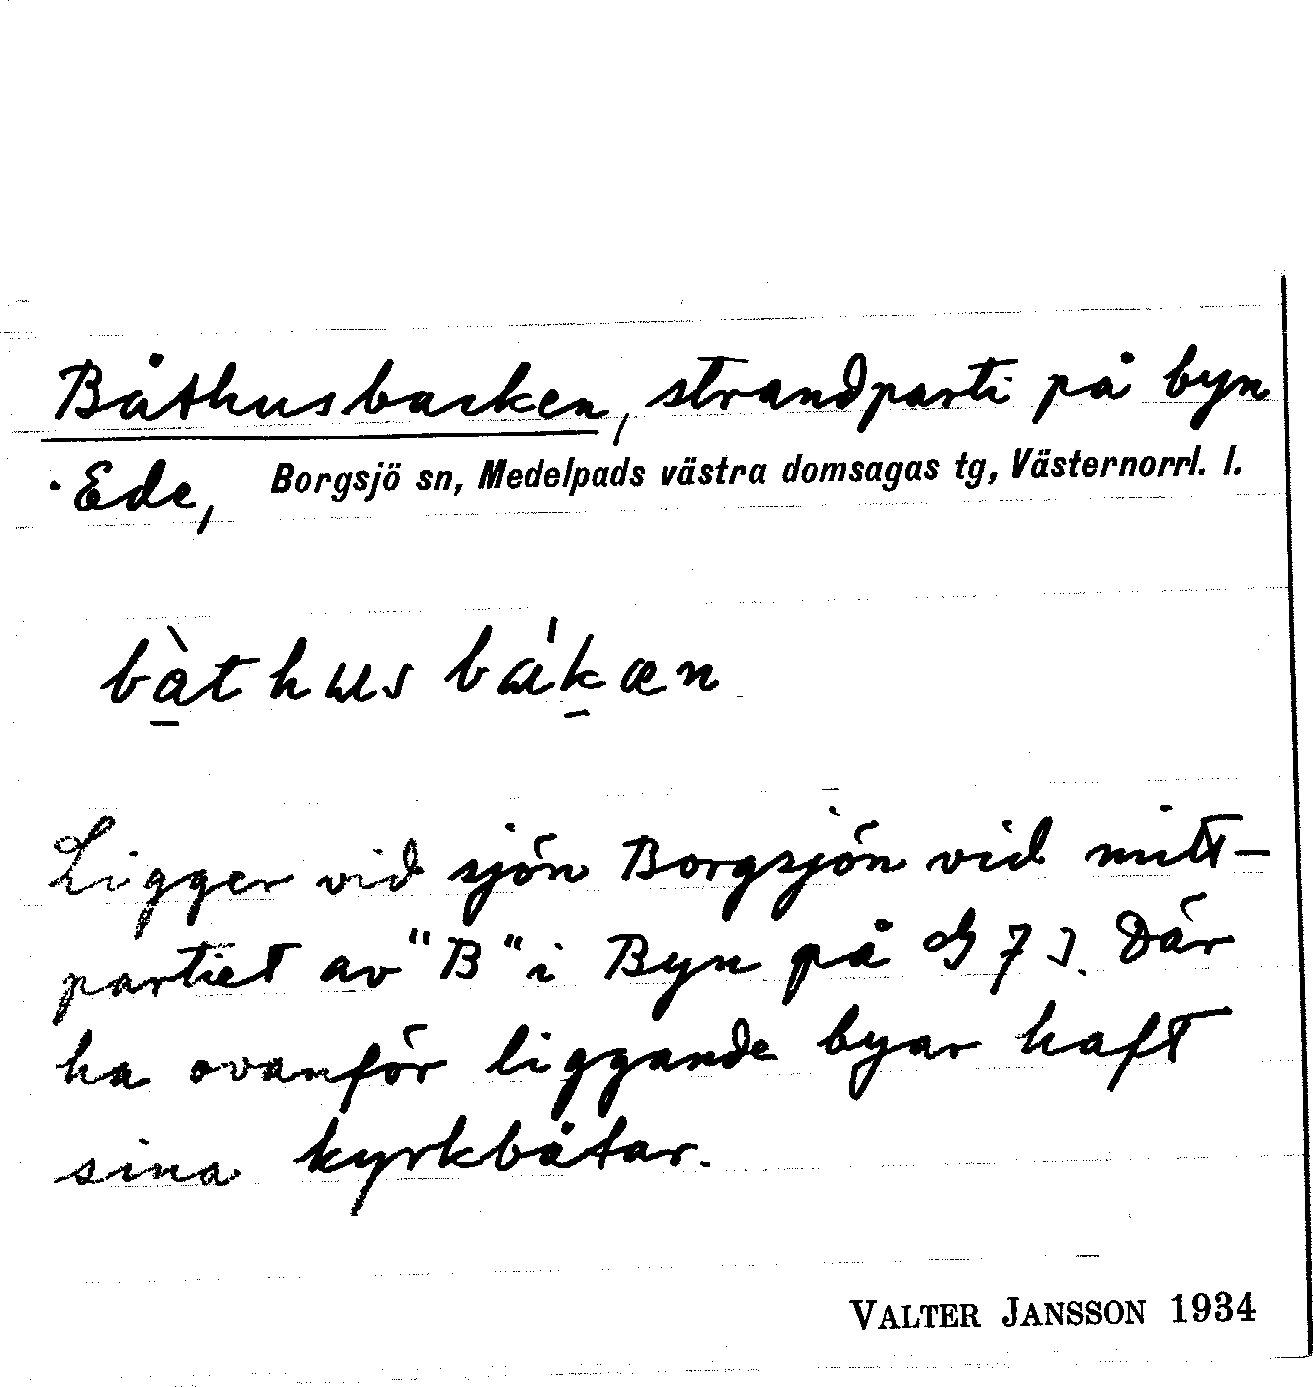 Båthusbacken, strandparti på byn
Ede, Borgsjö sn, Medelpads västra domsagas tg, Västernorrl. l.
bàthusbákæn
Ligger vid sjön Borgsjön vid mitt-
partiet av "B" i Byn på G 7 J. Där
ha ovanför liggande byar haft
sina kyrkbåtar.
VALTER JANSSON 1934